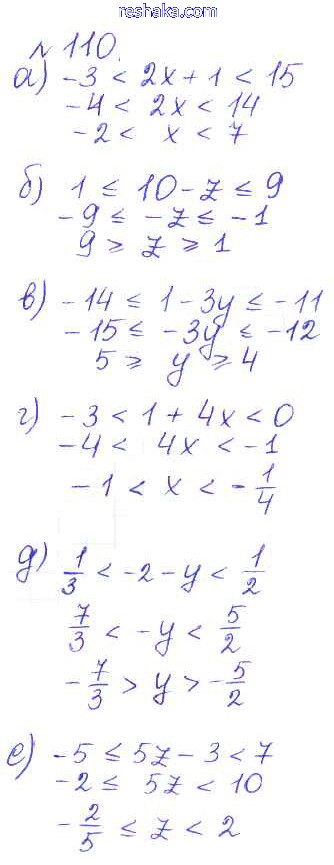 reshaka.com
№ 110.
а) -3 < 2x + 1 < 15
-4 < 2x < 14
-2 < x < 7
б) 1 ≤ 10 - z ≤ 9
-9 ≤ -z ≤ -1
9 ≥ z ≥ 1
в) -14 ≤ 1 - 3y ≤ -11
-15 ≤ -3y ≤ -12
5 ≥ y ≥ 4
г) -3 < 1 + 4x < 0
-4 < 4x < -1
-1 < x < -1/4
д) 1/3 < -2 - y < 1/2
7/3 < -y < 5/2
-7/3 > y > -5/2
е) -5 ≤ 5z - 3 < 7
-2 ≤ 5z < 10
-2/5 ≤ z < 2